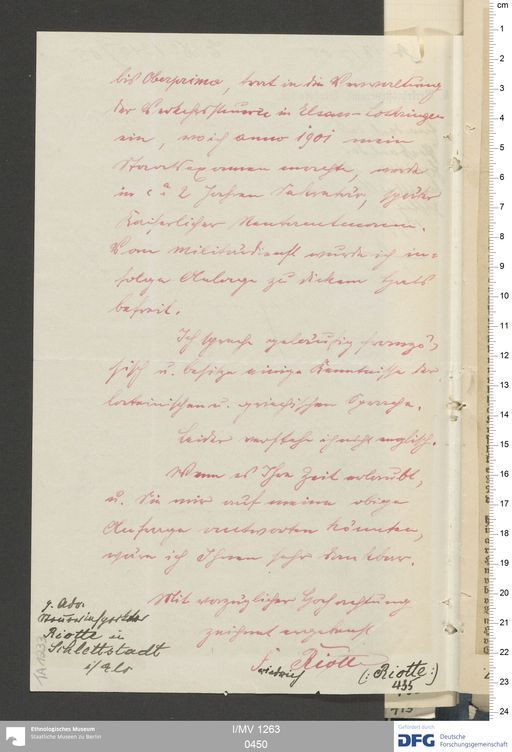 bis Oberprima, trat in die Verwaltung
der Verkehrssteuern in Elsass-Lothringen
ein, wo ich anno 1901 mein
Staatsexamen machte, wurde
in ca 2 Jahren Sekretär, später
Kaiserlicher Rentamtmann.
Vom Militärdienst wurde ich in=
folge Anlage zu dickem Hals
befreit.
Ich spreche geläufig franzö=
sisch u. besitze einige Kenntnisse der
lateinischen u. griechischen Sprache.
Leider verstehe ich nicht englisch.
Wenn es Ihre Zeit erlaubt,
u. Sie mir auf meine obige
Anfrage antworten könnten,
wäre ich Ihnen sehr dankbar.
Mit vorzüglicher Hochachtung
zeichnet ergebenst
Friedrich Riotte (: Riotte :)
435
Riotte in
Schlettstadt
i/Els
IA 1233
I/MV 1263
0450
Ethnologisches Museum
Staatliche Museen zu Berlin
Gefördert durch
DFG Deutsche
Forschungsgemeinschaft
cm
1
2
3
4
5
6
7
8
9
10
11
12
13
14
15
16
17
18
19
20
21
22
23
24